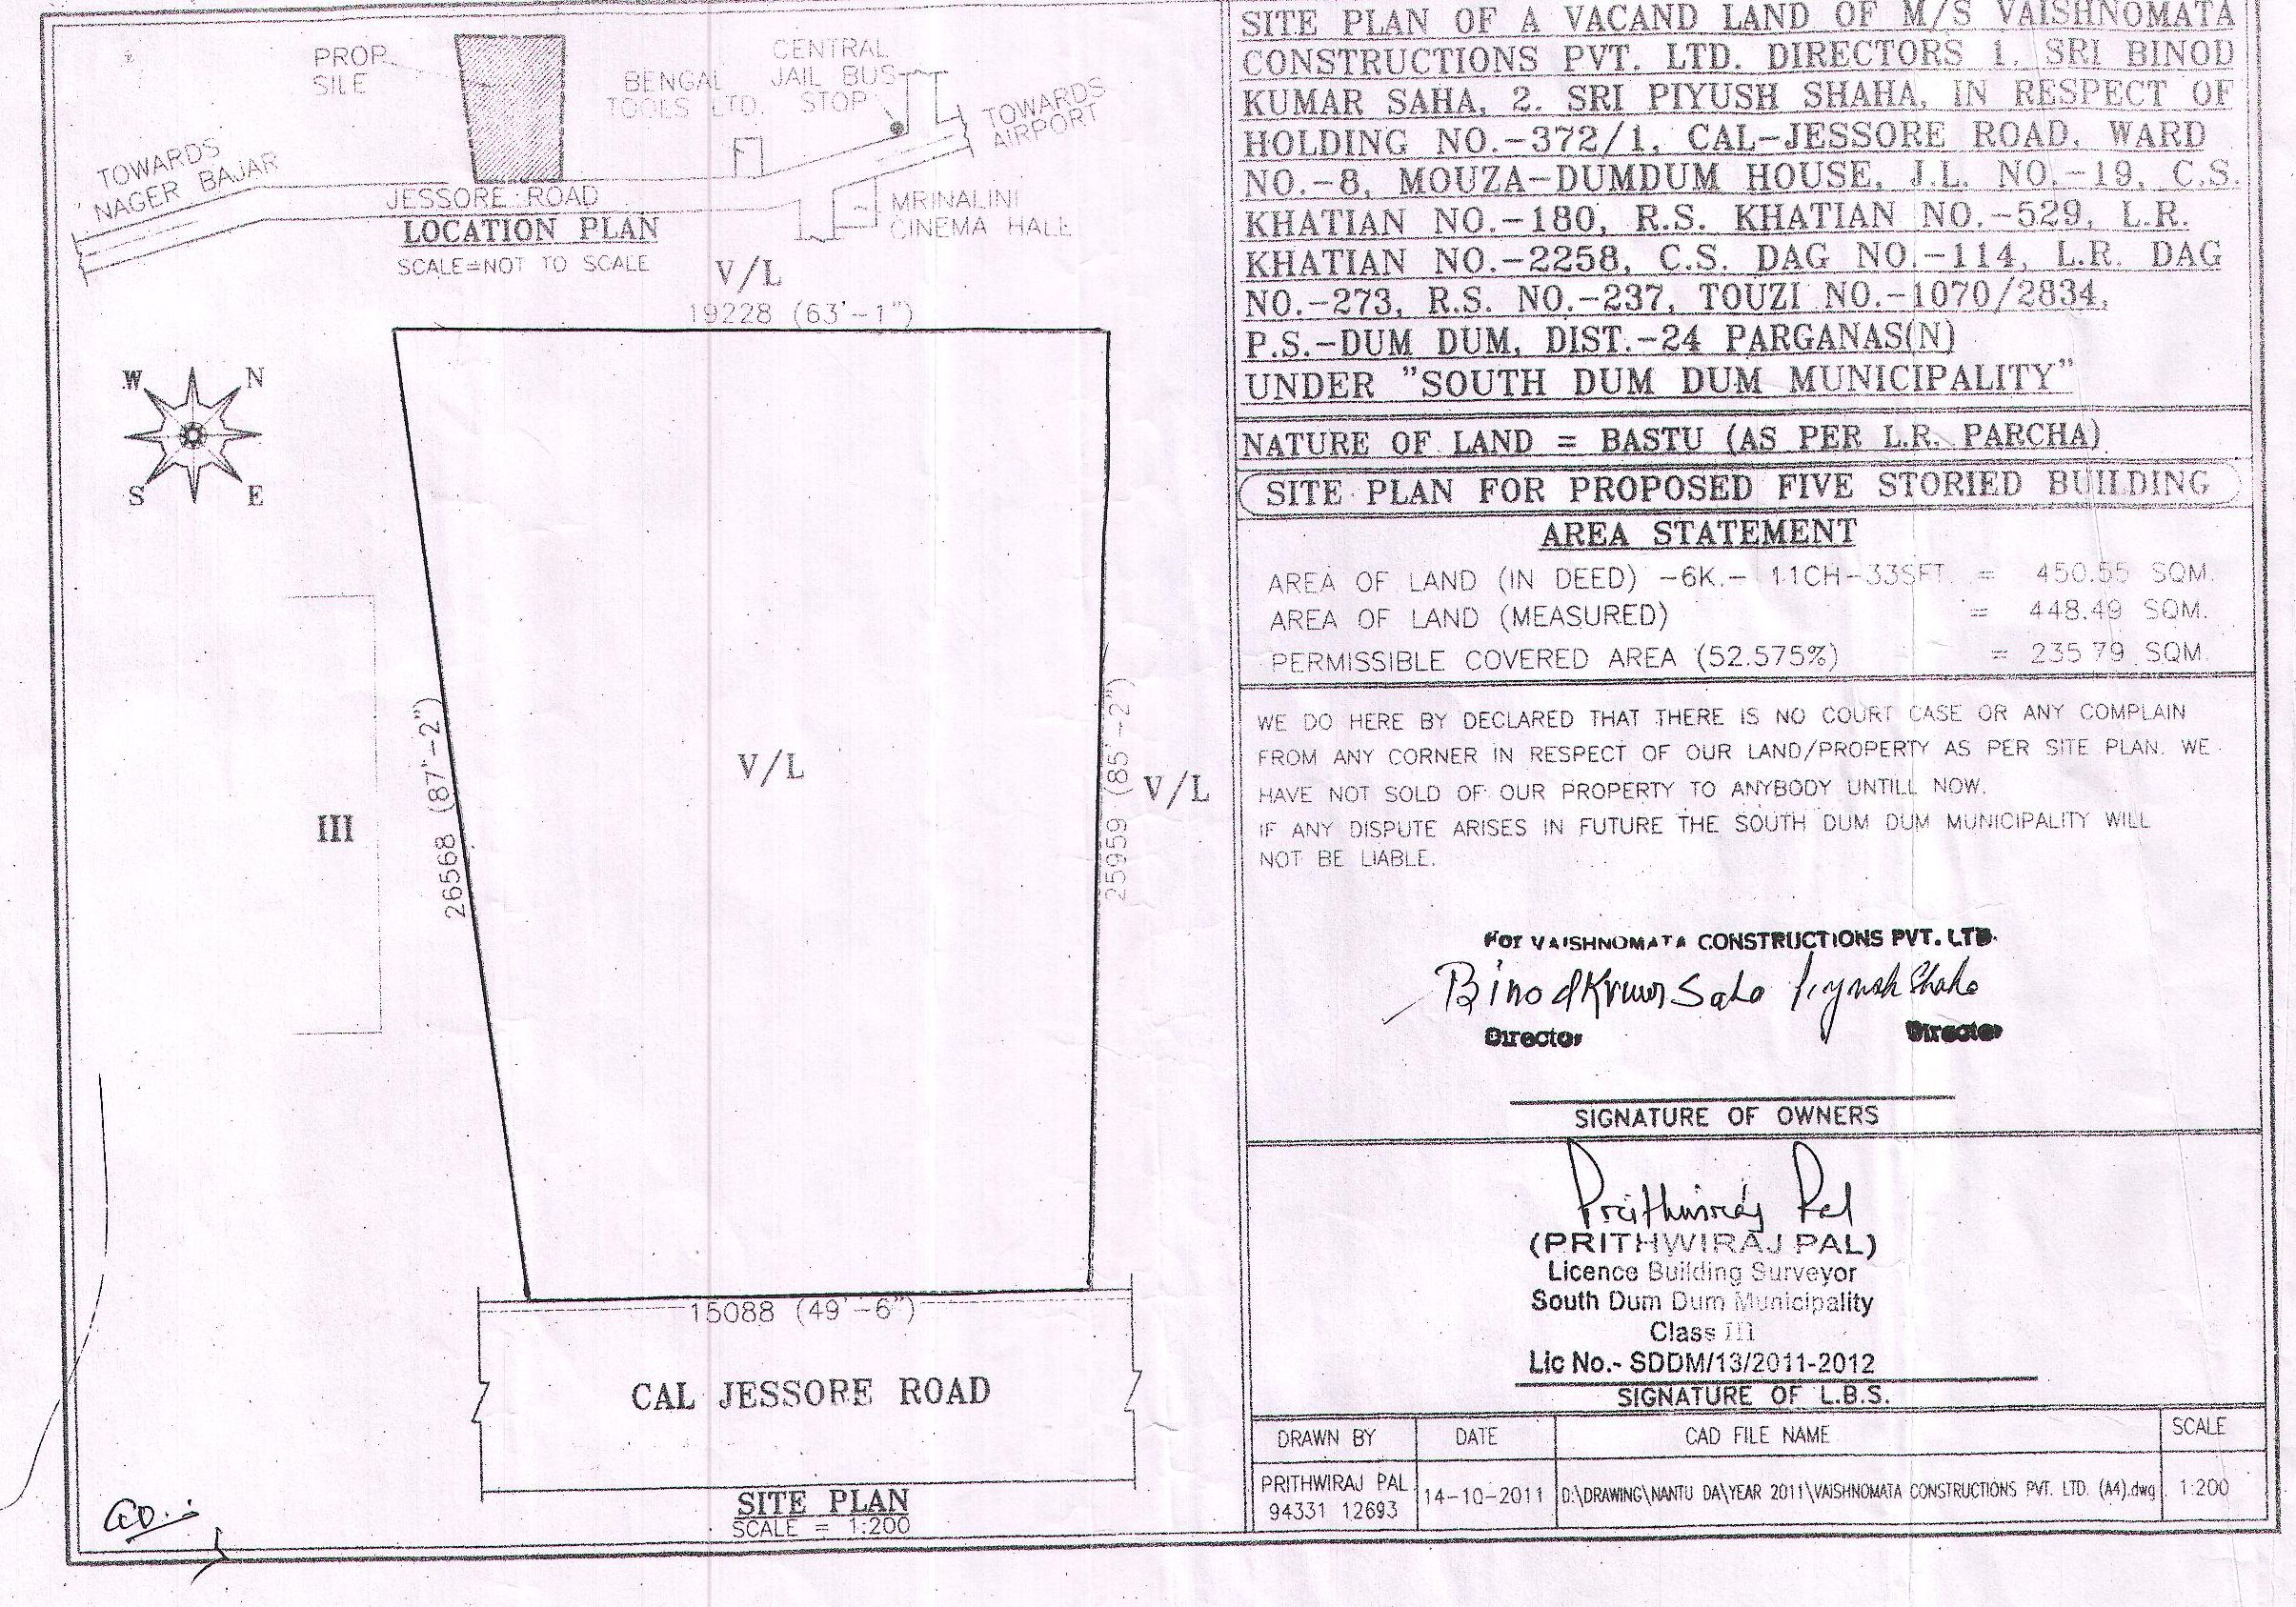 PROP.
SILE
BENGAL
TOOLS LTD.
CENTRAL
JAIL BUS
STOP
TOWARDS
AIRPORT
TOWARDS
NAGER BAJAR
JESSORE ROAD
MRINALINI
CINEMA HALL
LOCATION PLAN
SCALE=NOT TO SCALE
V/L
19228 (63'-1")
W
N
S
E
III
26568 (87'-2")
V/L
25959 (85'-2")
V/L
15088 (49'-6")
CAL JESSORE ROAD
SITE PLAN
SCALE = 1:200
SITE PLAN OF A VACAND LAND OF M/S VAISHNOMATA
CONSTRUCTIONS PVT. LTD. DIRECTORS 1. SRI BINOD
KUMAR SAHA, 2. SRI PIYUSH SHAHA, IN RESPECT OF
HOLDING NO.-372/1, CAL-JESSORE ROAD, WARD
NO.-8, MOUZA-DUMDUM HOUSE, J.L. NO.-19, C.S.
KHATIAN NO.-180, R.S. KHATIAN NO.-529, L.R.
KHATIAN NO.-2258, C.S. DAG NO.-114, L.R. DAG
NO.-273, R.S. NO.-237, TOUZI NO.-1070/2834,
P.S.-DUM DUM, DIST.-24 PARGANAS(N)
UNDER "SOUTH DUM DUM MUNICIPALITY"
NATURE OF LAND = BASTU (AS PER L.R. PARCHA)
SITE PLAN FOR PROPOSED FIVE STORIED BUILDING
AREA STATEMENT
AREA OF LAND (IN DEED) -6K.- 11CH-33SFT. = 450.55 SQM.
AREA OF LAND (MEASURED) = 448.49 SQM.
PERMISSIBLE COVERED AREA (52.575%) = 235.79 SQM.
WE DO HERE BY DECLARED THAT THERE IS NO COURT CASE OR ANY COMPLAIN
FROM ANY CORNER IN RESPECT OF OUR LAND/PROPERTY AS PER SITE PLAN. WE
HAVE NOT SOLD OF OUR PROPERTY TO ANYBODY UNTILL NOW.
IF ANY DISPUTE ARISES IN FUTURE THE SOUTH DUM DUM MUNICIPALITY WILL
NOT BE LIABLE.
For VAISHNOMATA CONSTRUCTIONS PVT. LTD.
Binod Kumar Saha Piyush Shaha
Director Director
SIGNATURE OF OWNERS
Prithwiraj Pal
(PRITHWIRAJ PAL)
Licence Building Surveyor
South Dum Dum Municipality
Class III
Lic No.- SDDM/13/2011-2012
SIGNATURE OF L.B.S.
DRAWN BY DATE CAD FILE NAME SCALE
PRITHWIRAJ PAL
94331 12693
14-10-2011 D:\DRAWING\NANTU DA\YEAR 2011\VAISHNOMATA CONSTRUCTIONS PVT. LTD. (A4).dwg 1:200